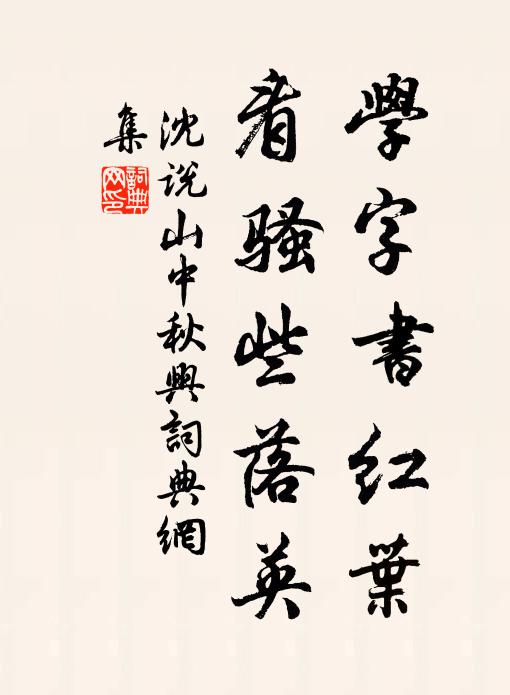 學字書紅葉
看騷些落英
沈說山中秋興詞典網
集
詞典
网印